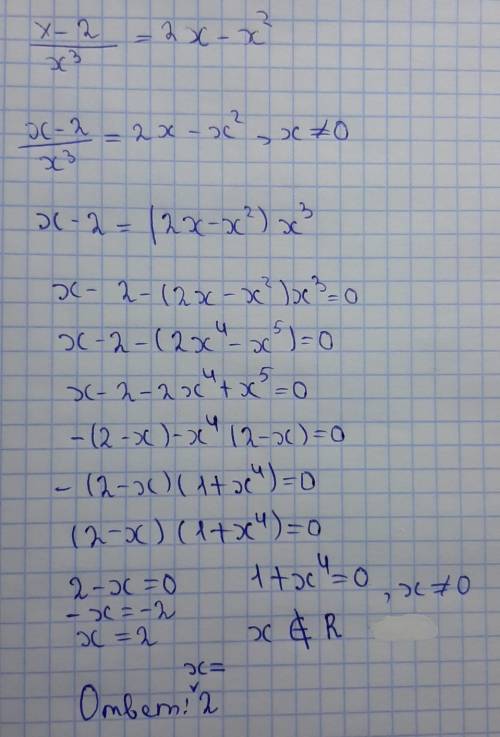 x-2/x³ = 2x - x²
x-2/x³ = 2x - x², x ≠ 0
x - 2 = (2x - x²) x³
x - 2 - (2x - x²)x³ = 0
x - 2 - (2x⁴ - x⁵) = 0
x - 2 - 2x⁴ + x⁵ = 0
-(2 - x) - x⁴ (2 - x) = 0
- (2 - x) (1 + x⁴) = 0
(2 - x) (1 + x⁴) = 0
2 - x = 0 1 + x⁴ = 0, x ≠ 0
- x = -2
x = 2 x ∉ R
x=
Ответ: 2